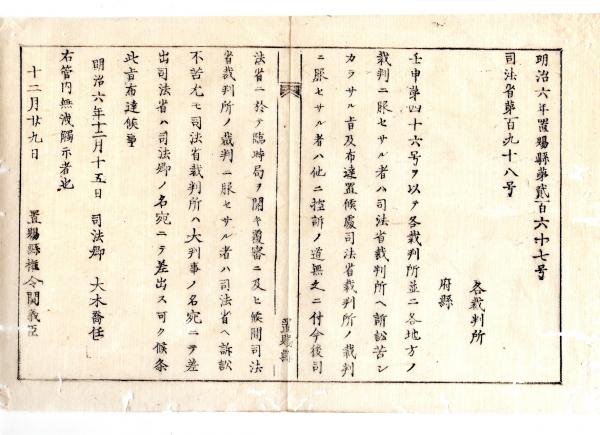 明治六年置賜縣第貳百六十七号
司法省第百九十八号
各裁判所
府縣
壬申第四十六号ヲ以テ各裁判所並ニ各地方ノ
裁判ニ服セサル者ハ司法省裁判所ヘ訴訟苦シ
カラサル旨及布達置候處司法省裁判所ノ裁判
ニ服セサル者ハ他ニ控訴ノ道無之ニ付今後司
置賜縣
法省ニ於テ臨時局ヲ開キ覆審ニ及ヒ候間司法
省裁判所ノ裁判ニ服セサル者ハ司法省ヘ訴訟
不苦尤モ司法省裁判所ハ大判事ノ名宛ニテ差
出司法省ハ司法卿ノ名宛ニテ差出ス可ク候条
此旨布達候事
明治六年十二月十五日 司法卿 大木喬任
右管内無洩觸示者也
十二月廿九日 置賜縣権令関義臣